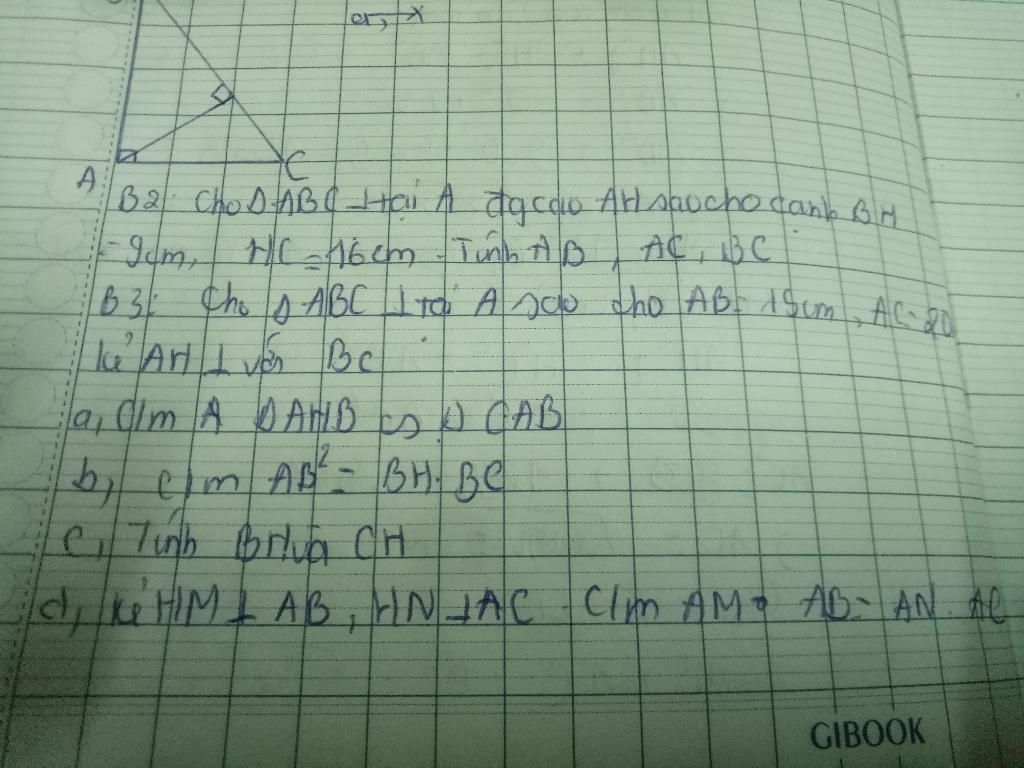 A
C
B2: Cho Δ ABC ⊥ tại A đg cao AH sao cho cạnh BH
= 9cm, HC = 16cm. Tính AB, AC, BC
B3: Cho Δ ABC ⊥ tại A sao cho AB = 15cm, AC = 20
kẻ AH ⊥ với BC
a, C/m A Δ AHB ∽ Δ CAB
b, c/m AB² = BH. BC
c, Tính BH và CH
d, kẻ HM ⊥ AB, HN ⊥ AC C/m AM. AB = AN. AC
GIBOOK